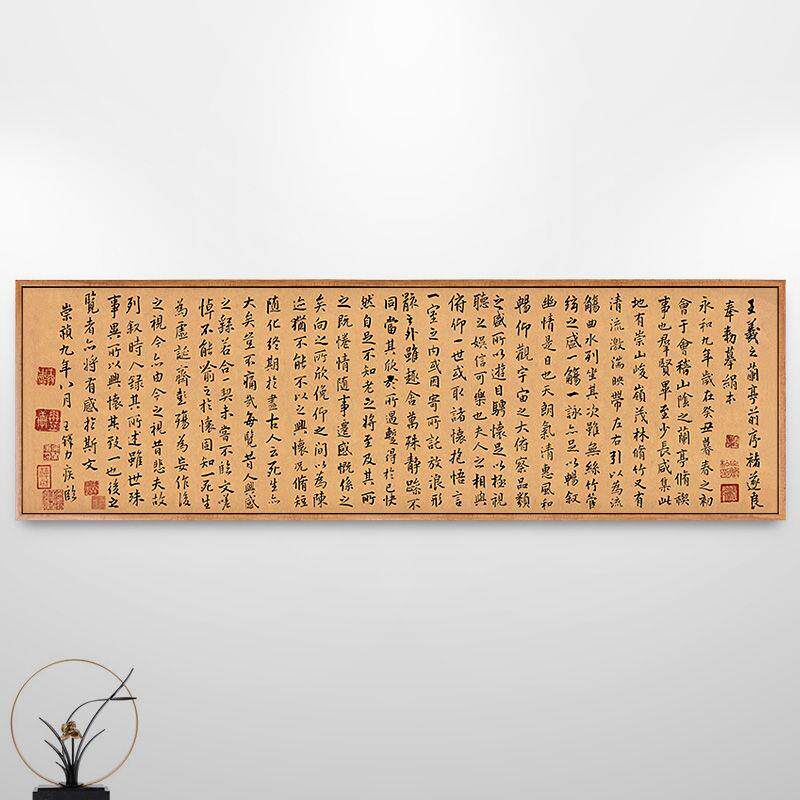 王羲之蘭亭前序褚遂良
奉勑摹絹本
永和九年歲在癸丑暮春之初
會于會稽山陰之蘭亭脩禊
事也羣賢畢至少長咸集此
地有崇山峻嶺茂林脩竹又有
清流激湍映帶左右引以為流
觴曲水列坐其次雖無絲竹管
絃之盛一觴一詠亦足以暢敘
幽情是日也天朗氣清惠風和
暢仰觀宇宙之大俯察品類
之盛所以遊目騁懷足以極視
聽之娛信可樂也夫人之相與
俯仰一世或取諸懷抱悟言
一室之內或因寄所託放浪形
骸之外雖趣舍萬殊靜躁不
同當其欣於所遇暫得於己快
然自足不知老之將至及其所
之既惓情隨事遷感慨係之
矣向之所欣俛仰之間以為陳
迹猶不能不以之興懷況脩短
隨化終期於盡古人云死生亦
大矣豈不痛哉每覽昔人興感
之繇若合一契未嘗不臨文嗟
悼不能喻之於懷固知死生
為虛誕齊彭殤為妄作後
之視今亦由今之視昔悲夫故
列敘時人錄其所述雖世殊
事異所以興懷其致一也後之
覽者亦將有感於斯文
崇禎九年八月 王鐸力疾臨